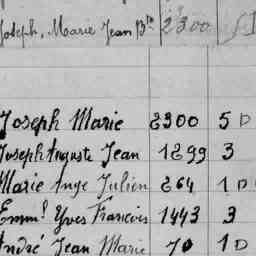 Joseph, Marie Jean Bte 2300
Joseph Marie 2300 5 D
Joseph Auguste Jean 1299 3
Marie Ange Julien 264 1 D
Emml Yves Francois 1443 3
André Jean Marie 70 1 D